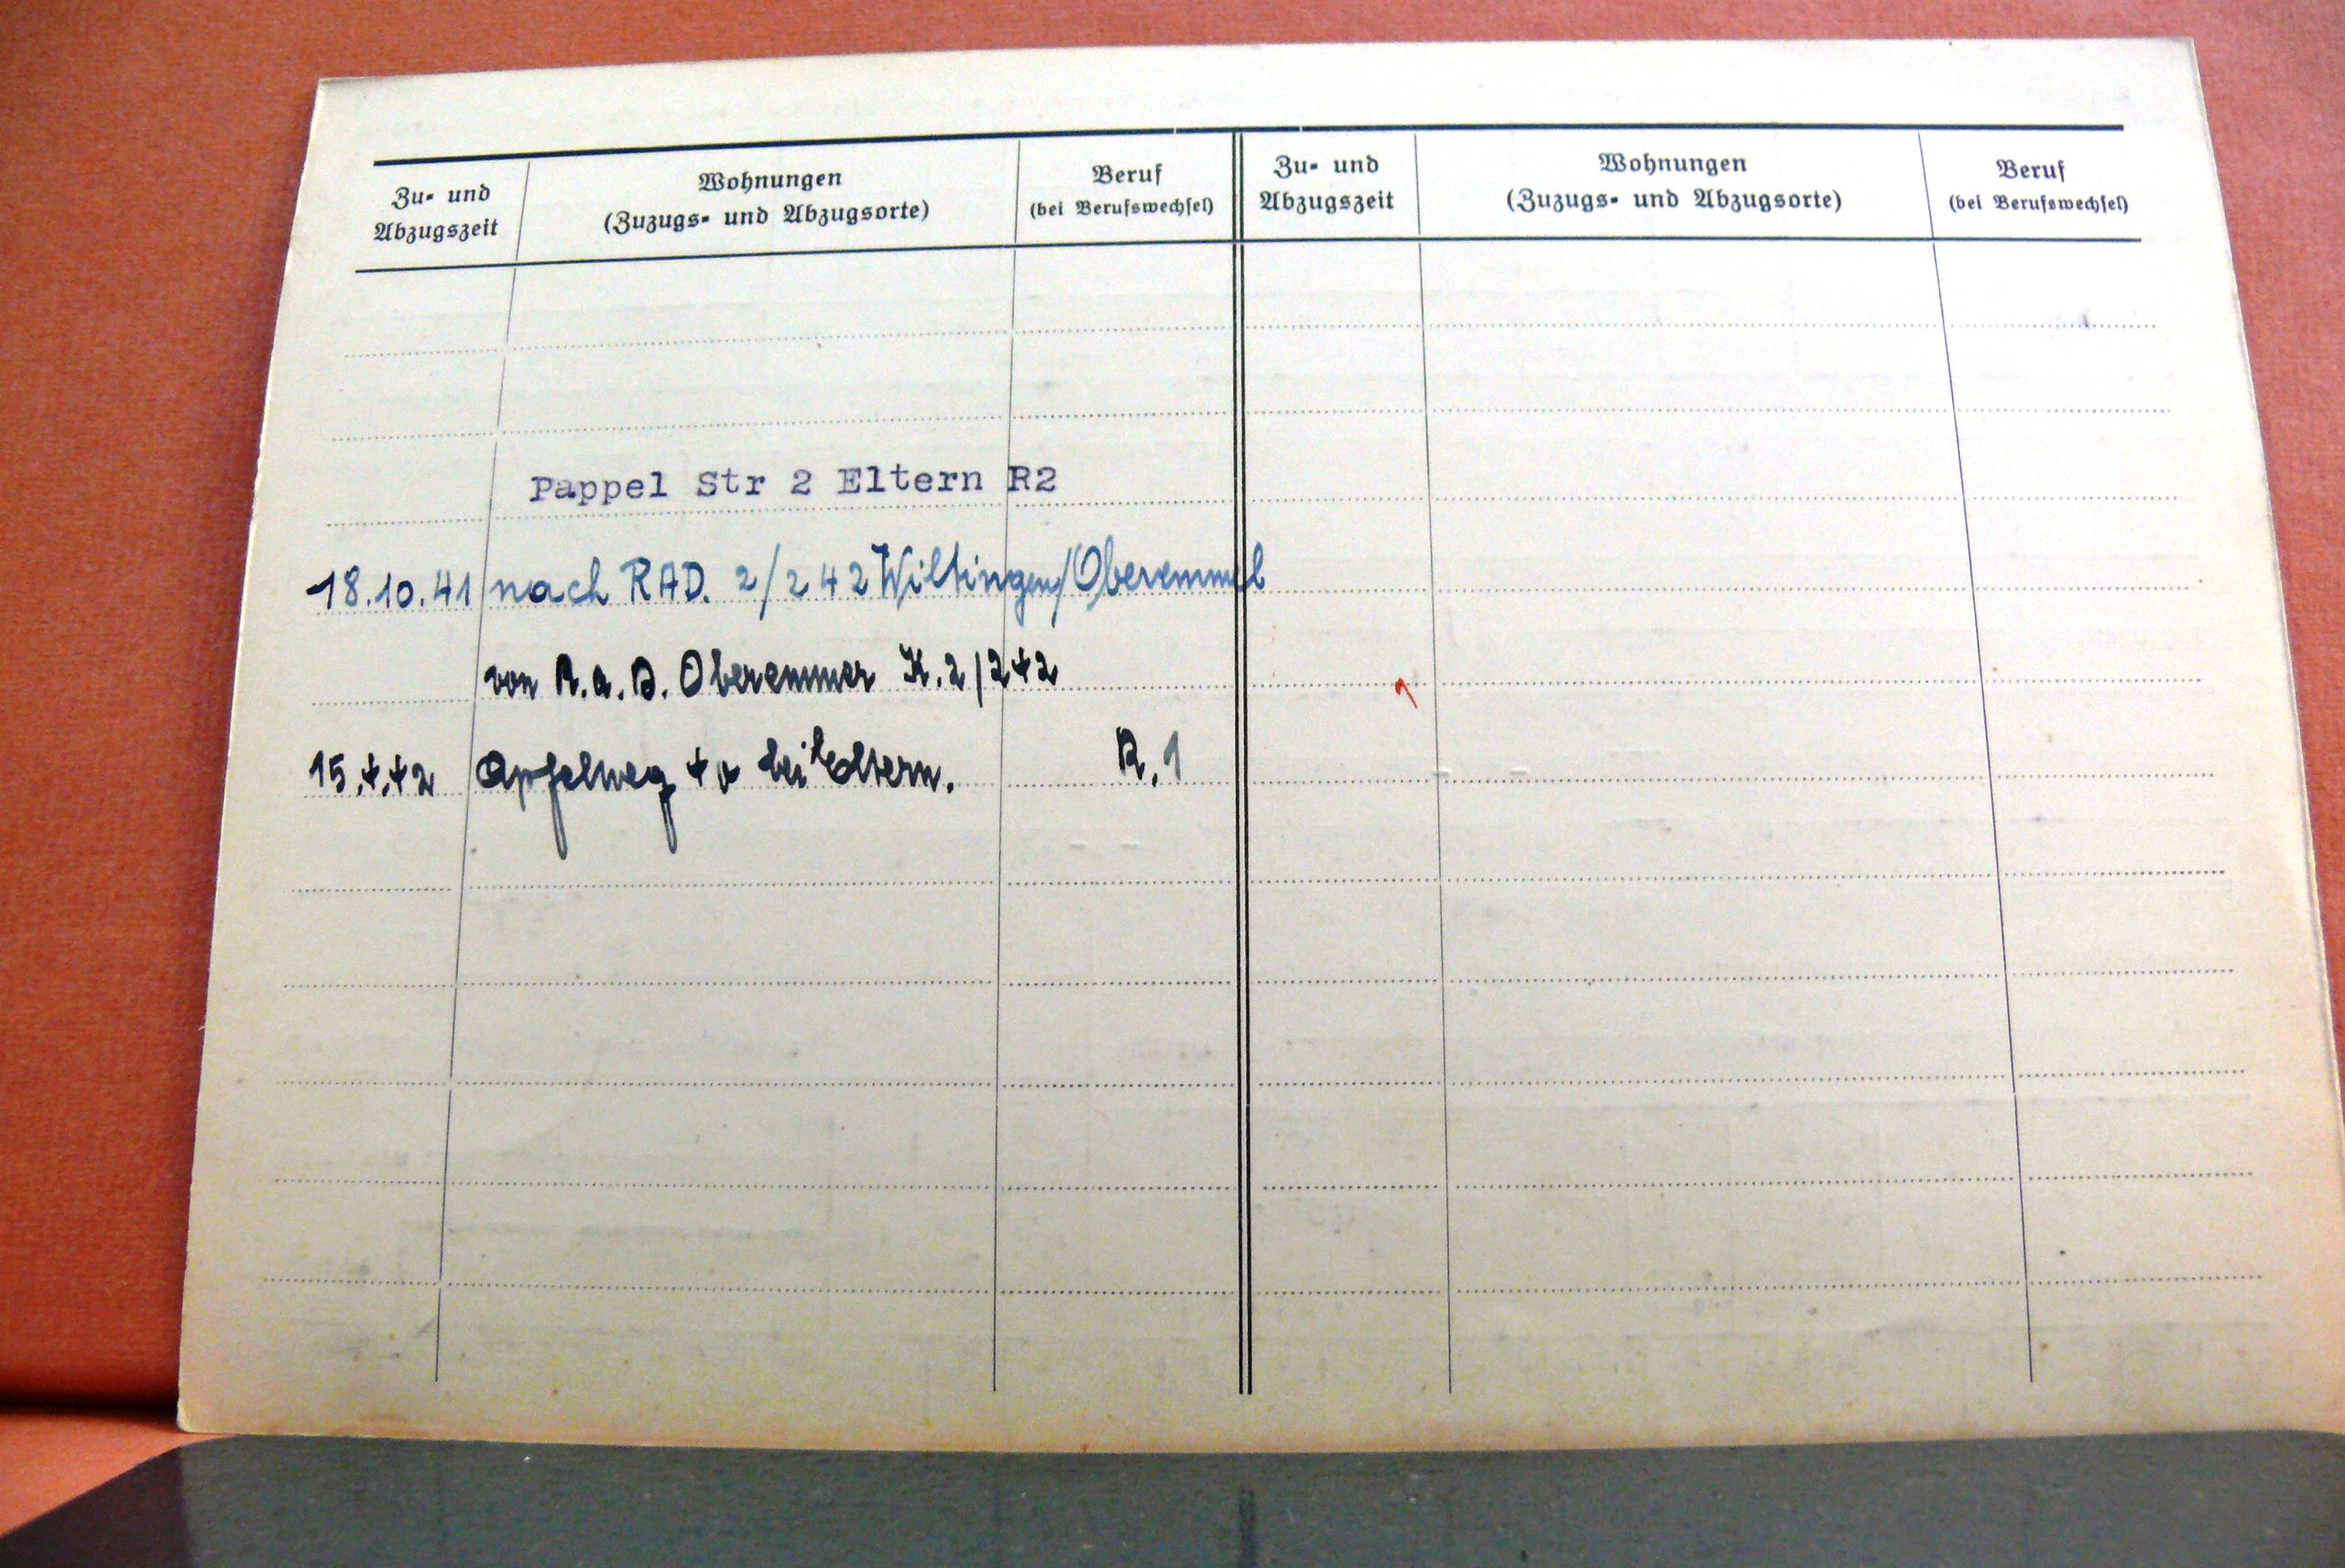 Zu- und
Abzugszeit
Wohnungen
(Zuzugs- und Abzugsorte)
Beruf
(bei Berufswechsel)
Zu- und
Abzugszeit
Wohnungen
(Zuzugs- und Abzugsorte)
Beruf
(bei Berufswechsel)
Pappel Str 2 Eltern R2
18.10.41 nach RAD. 2/242 Wiltingen/Oberemmel
von R.a.D. Oberemmer K. 2/242
15.4.42 Apfelweg 4 bei Eltern. R.1